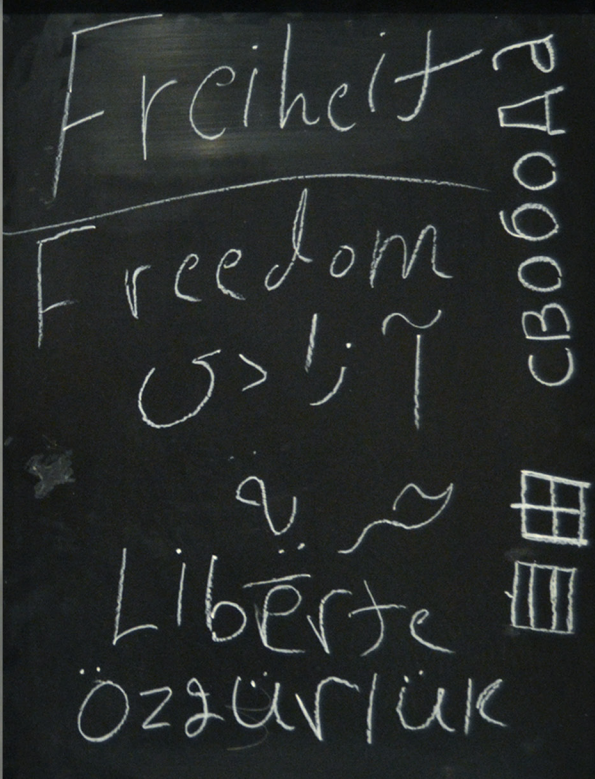 Freiheit
Freedom
آزادی
حرية
Libērte
Özgürlük
свобода
自由